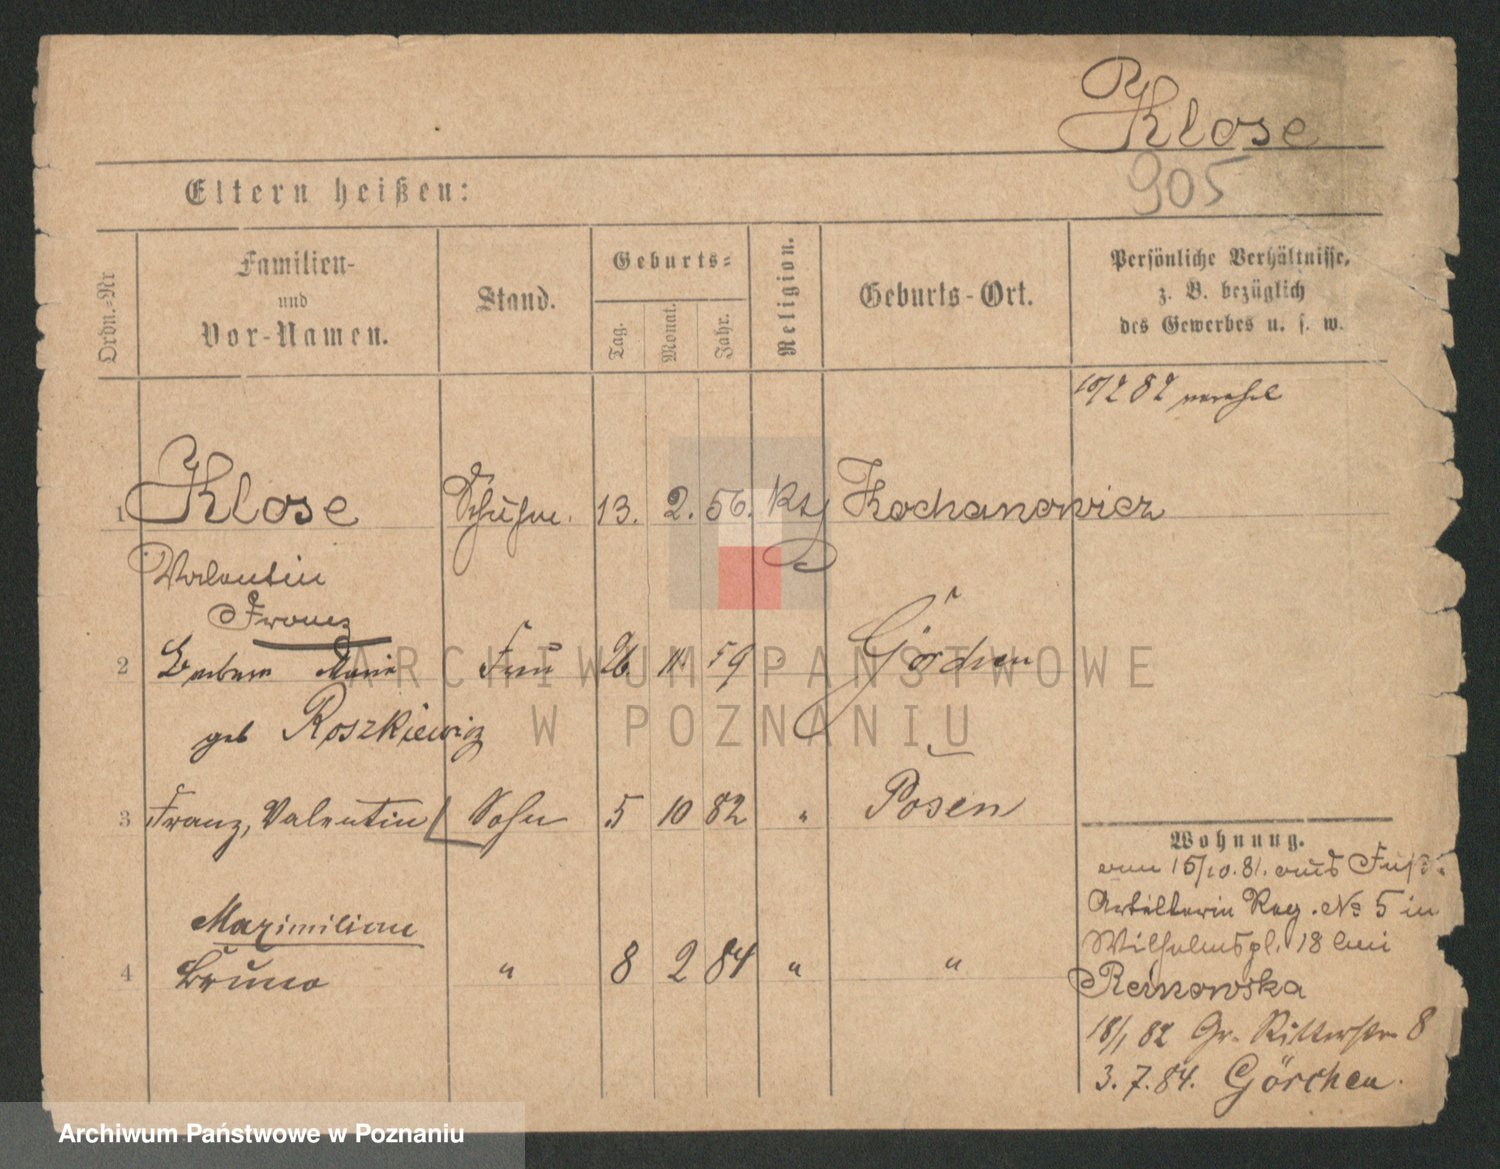 Klose
905
Eltern heißen:
Ordn.-Nr
Familien-
und
Vor-Namen.
Stand.
Geburts-
Tag.
Monat.
Jahr.
Religion.
Geburts-Ort.
Persönliche Verhältnisse,
z. B. bezüglich
des Gewerbes u. s. w.
10/2 82 verehel
1 Klose 13. 2. 56. Kth Kochanowicz
Valentin
Franz
2 Barbara Marie Frau 26. 11. 59 " Görchen
geb Roszkiewicz
3 Franz, Valentin Sohn 5 10 82 " Posen
Maximilian
4 Bruno " 8 2 84 " "
Wohnung.
am 15/10. 81. aus Fuß-
Artillerie Reg. No 5 in
Wilhelmspl. 18 bei
18/1 82 Gr. Ritterstr 8
3. 7. 84. Görchen.
ARCHIWUM PAŃSTWOWE
W POZNANIU
Archiwum Państwowe w Poznaniu